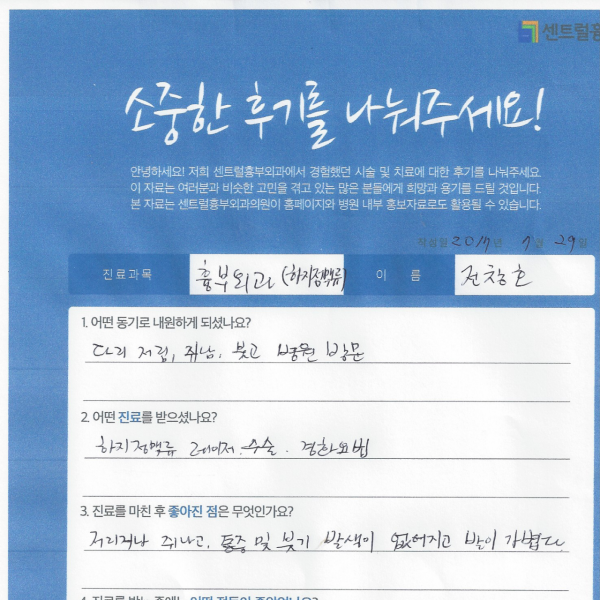 센트럴흉
소중한 후기를 나눠주세요!
안녕하세요! 저희 센트럴흉부외과에서 경험했던 시술 및 치료에 대한 후기를 나눠주세요.
이 자료는 여러분과 비슷한 고민을 겪고 있는 많은 분들에게 희망과 용기를 드릴 것입니다.
본 자료는 센트럴흉부외과의원이 홈페이지와 병원 내부 홍보자료로도 활용될 수 있습니다.
작성일 2017년 7월 29일
진료과목 흉부외과 (하지정맥류) 이 름 전창호
1. 어떤 동기로 내원하게 되셨나요?
다리 저림, 쥐남, 붓고 병원 방문
2. 어떤 진료를 받으셨나요?
하지정맥류 레이저 수술. 경화요법
3. 진료를 마친 후 좋아진 점은 무엇인가요?
쥐나고, 통증 및 붓기 발생이 없어지고 발이 가볍다.